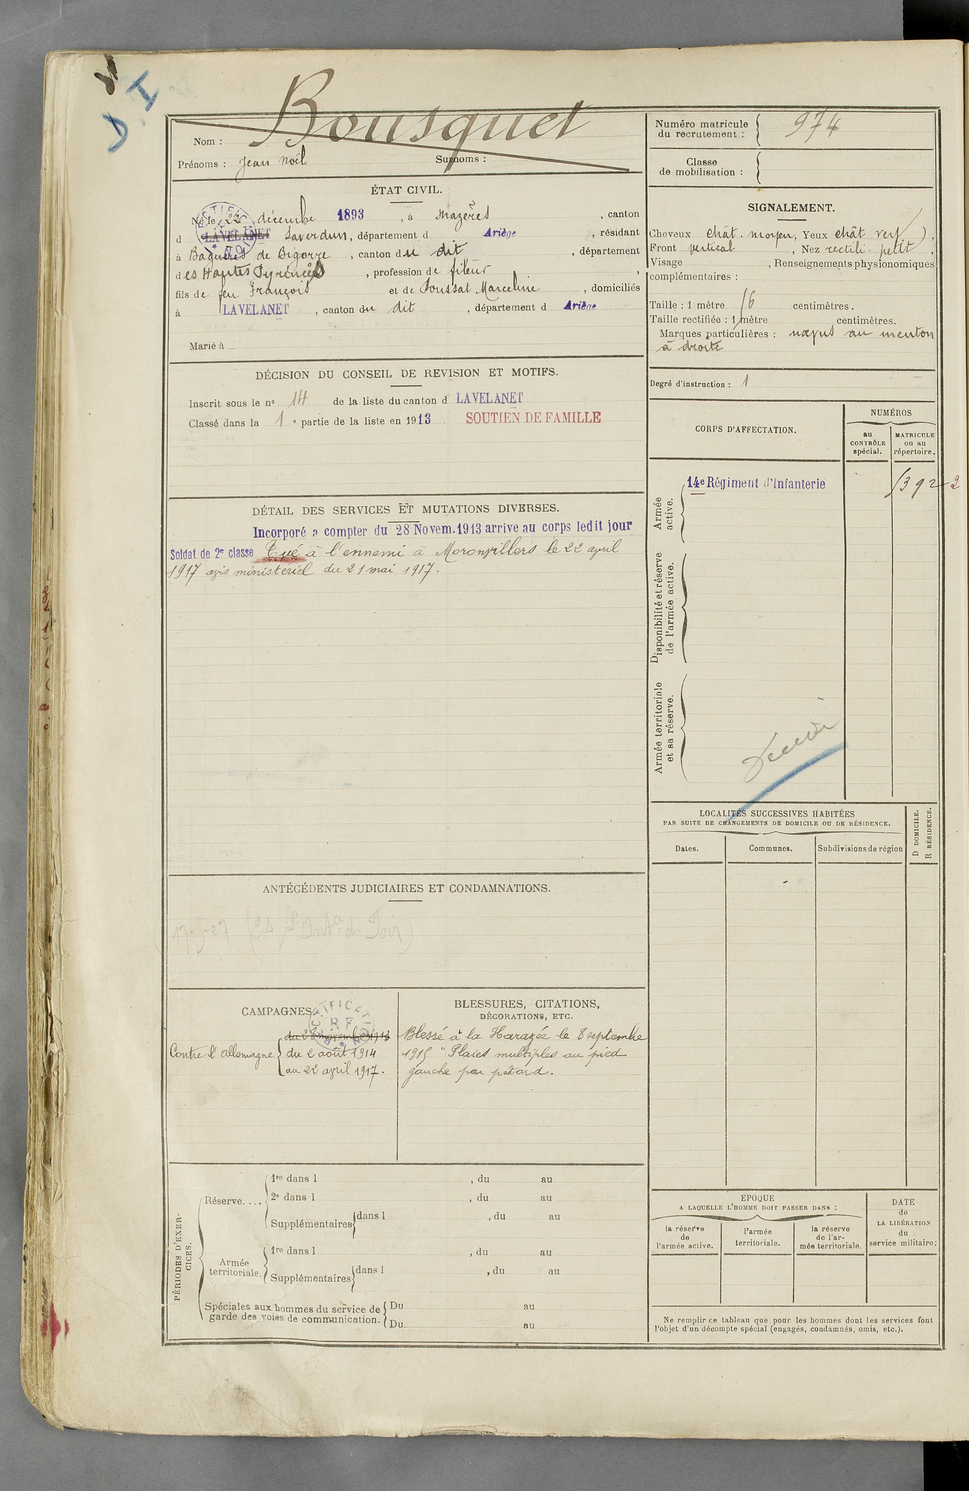 D I
Nom : Bousquet
Prénoms : Jean Noël Surnoms :
Numéro matricule du recrutement : 974
Classe de mobilisation :
ÉTAT CIVIL.
Né le décembre 1893, à Mazères, canton
d LAVELANET Saverdun, département d Ariège, résidant
à Bagnères de Bigorre, canton du dit, département
des Htes Hautes Pyrénées, profession de fileur,
fils de feu François et de Soussat Marceline, domiciliés
à LAVELANET, canton du dit, département d Ariège
Marié à
SIGNALEMENT.
Cheveux chât. moyen, Yeux chât. verf,
Front vertical, Nez rectil. petit,
Visage , Renseignements physionomiques
complémentaires :
Taille : 1 mètre 16 centimètres.
Taille rectifiée : 1 mètre centimètres.
Marques particulières : nœvus au menton
à droite
Degré d'instruction : 1
DÉCISION DU CONSEIL DE REVISION ET MOTIFS.
Inscrit sous le n° 14 de la liste du canton d LAVELANET
Classé dans la 1e partie de la liste en 1913 SOUTIEN DE FAMILLE
CORPS D'AFFECTATION.
NUMÉROS
au CONTRÔLE spécial.
MATRICULE ou au répertoire.
Armée active.
14e Régiment d'Infanterie
Disponibilité et réserve de l'armée active.
Armée territoriale et sa réserve.
DÉTAIL DES SERVICES ET MUTATIONS DIVERSES.
Incorporé a compter du 28 Novem. 1913 arrive au corps ledit jour
Soldat de 2e classe Tué à l'ennemi à Moronvillers le 22 avril
1917 avis ministériel du 21 mai 1917.
LOCALITÉS SUCCESSIVES HABITÉES
PAR SUITE DE CHANGEMENTS DE DOMICILE OU DE RÉSIDENCE.
Dates.
Communes.
Subdivisions de région
D DOMICILE.
R RÉSIDENCE.
ANTÉCÉDENTS JUDICIAIRES ET CONDAMNATIONS.
CAMPAGNES.
RECTIFICATION
RF
Contre l'Allemagne du 2 août 1914
au 22 avril 1917.
BLESSURES, CITATIONS,
DÉCORATIONS, ETC.
Blessé à la Harazée le 8 septembre
1915 "Plaies multiples au pied
gauche par pétard.
PÉRIODES D'EXERCICES.
Réserve....
1re dans l , du au
2e dans l , du au
Supplémentaires dans l , du au
Armée territoriale.
1re dans l , du au
Supplémentaires dans l , du au
Spéciales aux hommes du service de garde des voies de communication.
Du au
Du au
EPOQUE
A LAQUELLE L'HOMME DOIT PASSER DANS :
la réserve de l'armée active.
l'armée territoriale.
la réserve de l'armée territoriale.
DATE de LA LIBÉRATION du service militaire.
Ne remplir ce tableau que pour les hommes dont les services font
l'objet d'un décompte spécial (engagés, condamnés, omis, etc.).